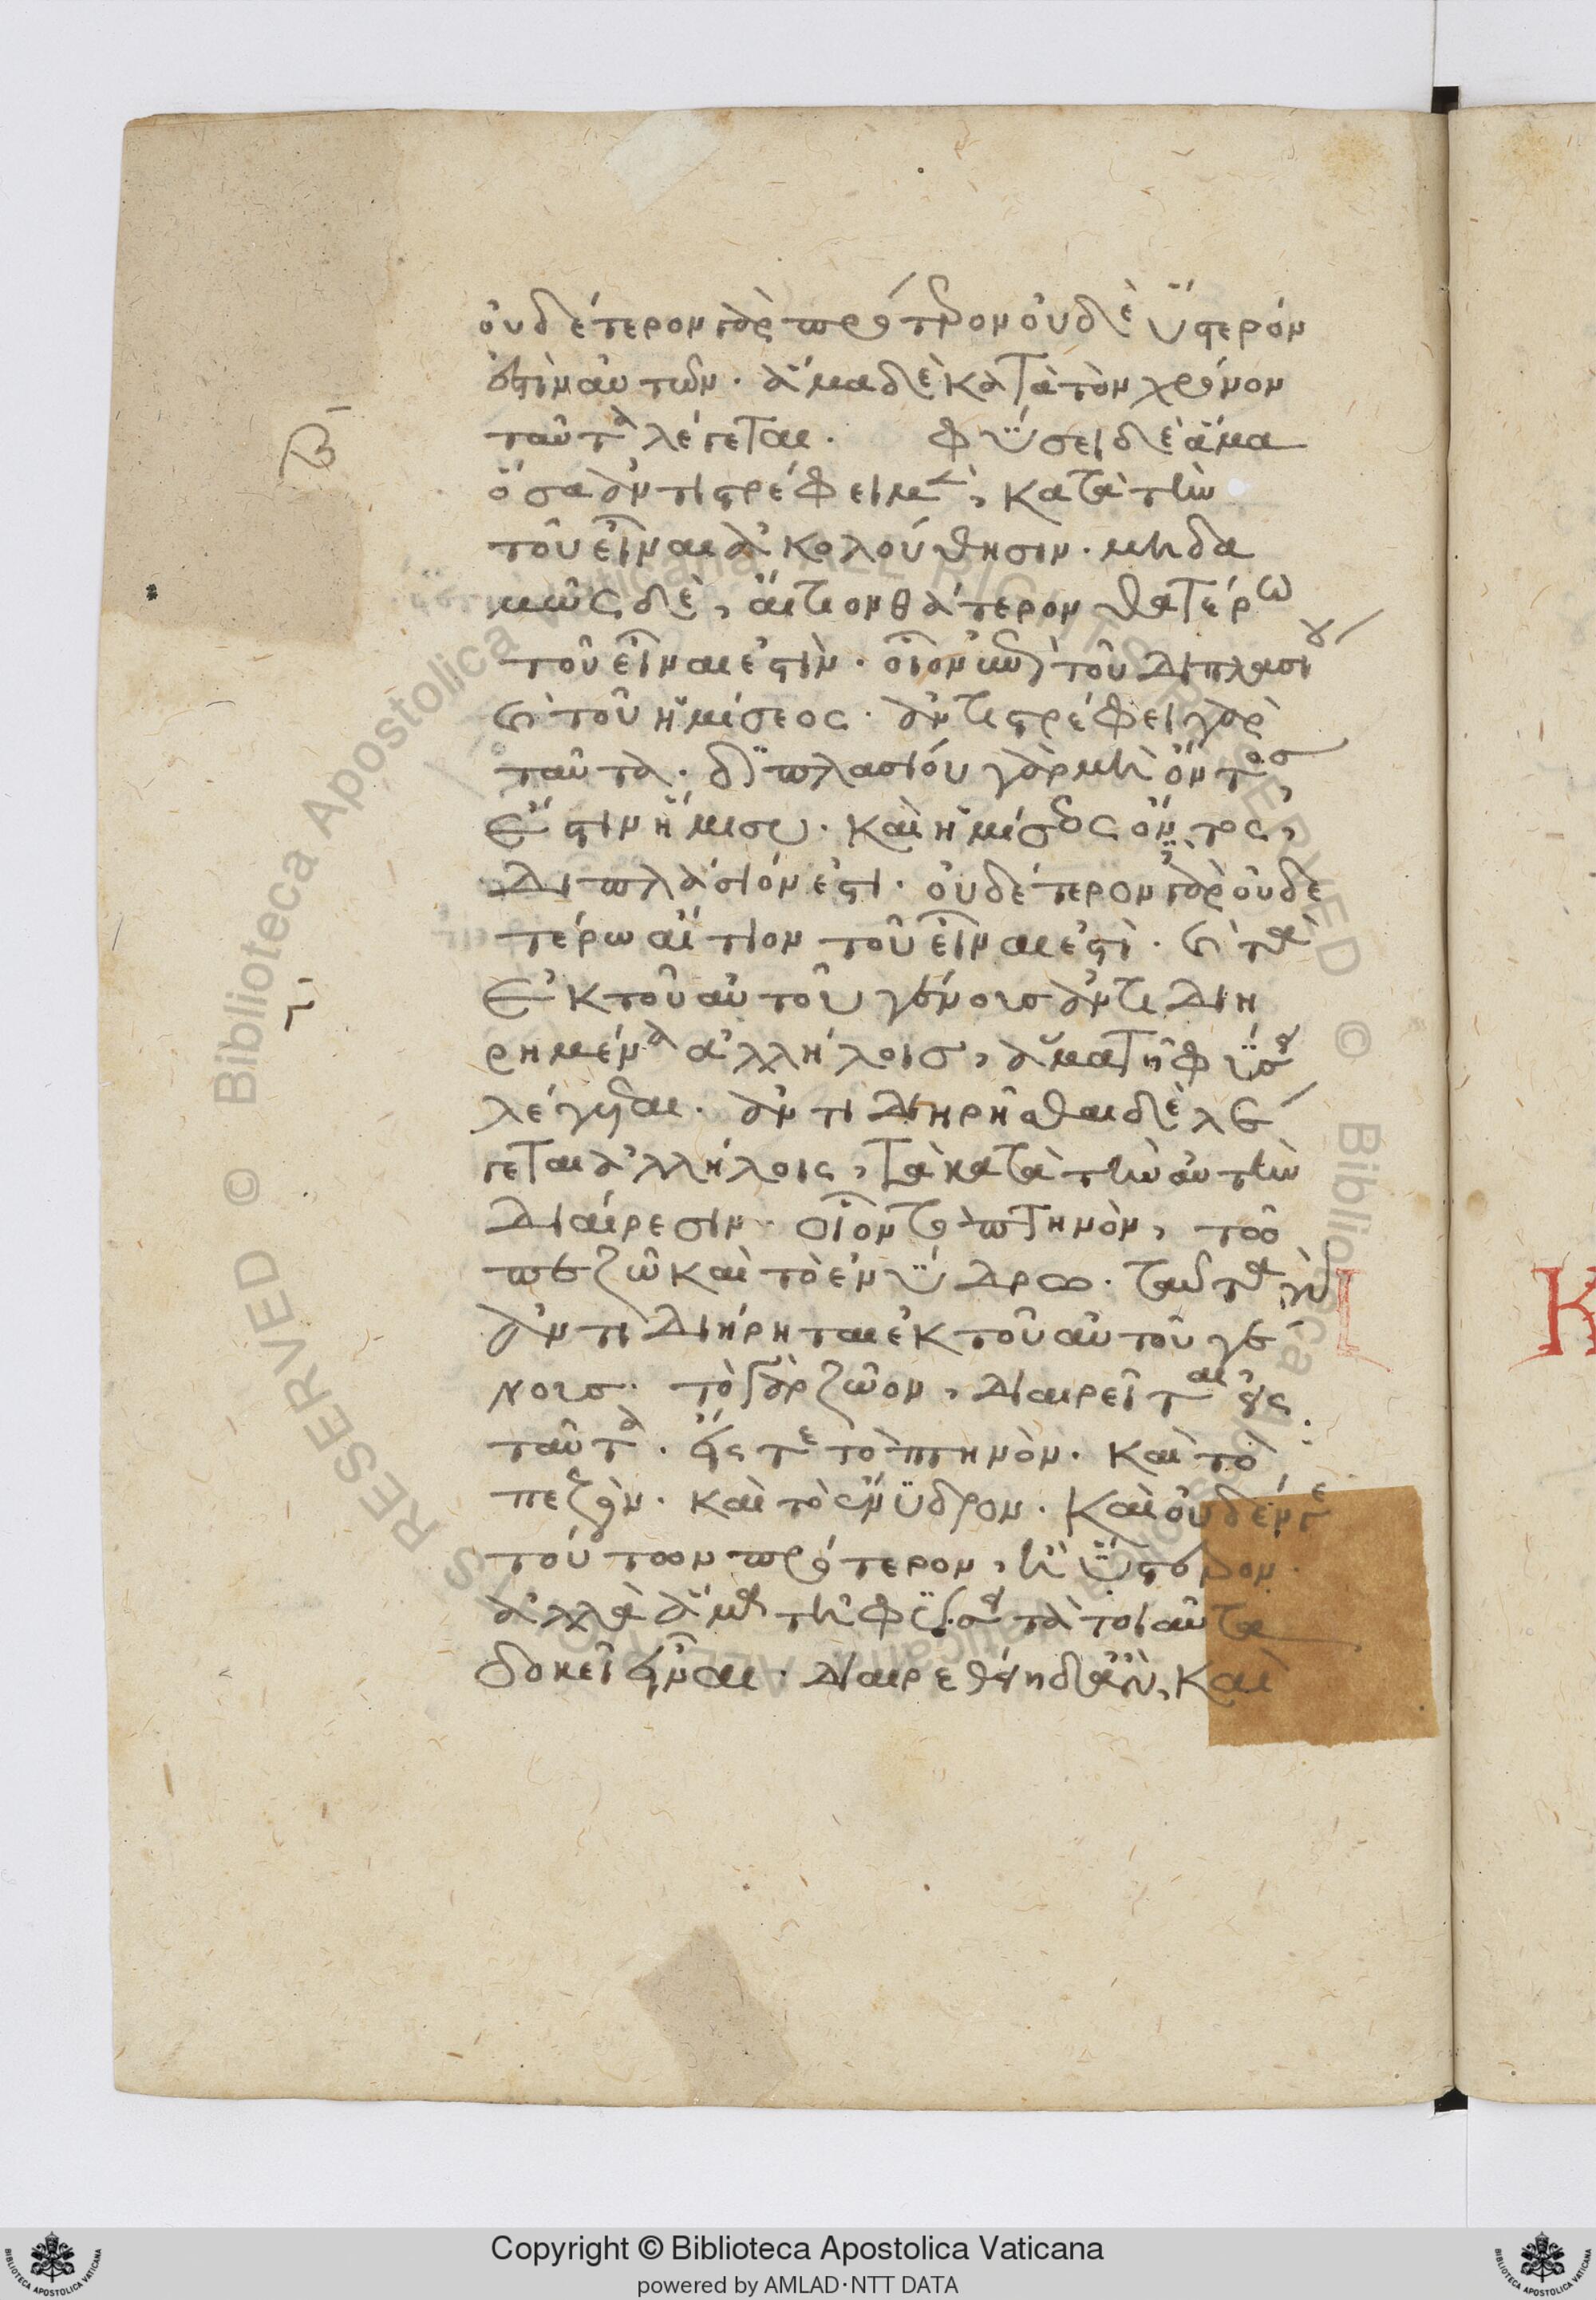 οὐδέτερον γὰρ πρότερον οὐδὲ ὕστερόν
ἐστιν αὐτῶν· ἅμα δὲ κατὰ τὸν χρόνον
ταῦτα λέγεται. φύσει δὲ ἅμα
β
ὅσα ἀντιστρέφει μὲν, κατὰ τὴν
τοῦ εἶναι ἀκολούθησιν· μηδα
μῶς δὲ, αἴτιον θάτερον θατέρω
τοῦ εἶναι ἐστὶν· οἷον ἐπὶ τοῦ διπλασίου
καὶ τοῦ ἡμίσεος· ἀντιστρέφει γὰρ
ταῦτα· διπλασίου γὰρ μὴ ὄντος
ἔστιν ἥμισυ· καὶ ἡμίσεος ὄντος,
διπλάσιόν ἐστι· οὐδέτερον γὰρ οὐδε
τέρω αἴτιον τοῦ εἶναι ἐστὶ· καὶ τὰ
γ
ἐκ τοῦ αὐτοῦ γένους ἀντιδιη
ρημένα ἀλλήλοις, ἅμα τῇ φύσει
λέγεται· ἀντιδιηρῆσθαι δὲ λέ
γεται ἀλλήλοις, τὰ κατὰ τὴν αὐτὴν
διαίρεσιν· οἷον τὸ πτηνὸν, τῶ
πεζῶ καὶ τὸ ἐνύδρω· ταῦτα γὰρ
ἀντιδιήρηται ἐκ τοῦ αὐτοῦ γέ
νους· τὸ γὰρ ζῶον, διαιρεῖται εἰς
ταῦτα· εἴς τε τὸ πτηνὸν· καὶ τὸ
πεζὸν· καὶ τὸ ἔνυδρον· καὶ οὐδέν γε
τούτων πρότερον, ἢ ὕστερον·
ἀλλὰ ἅμα τῇ φύσει τὰ τοιαῦτα
δοκεῖ εἶναι· διαιρεθείη δ' ἂν, καὶ
K
Copyright © Biblioteca Apostolica Vaticana
powered by AMLAD·NTT DATA